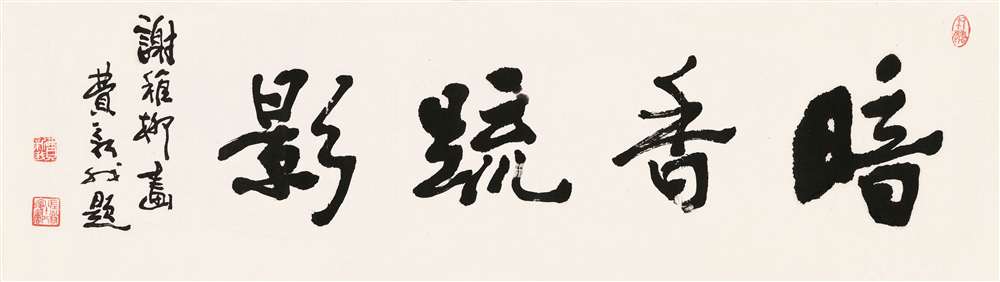 暗香疏影
謝稚柳畫
費新我題